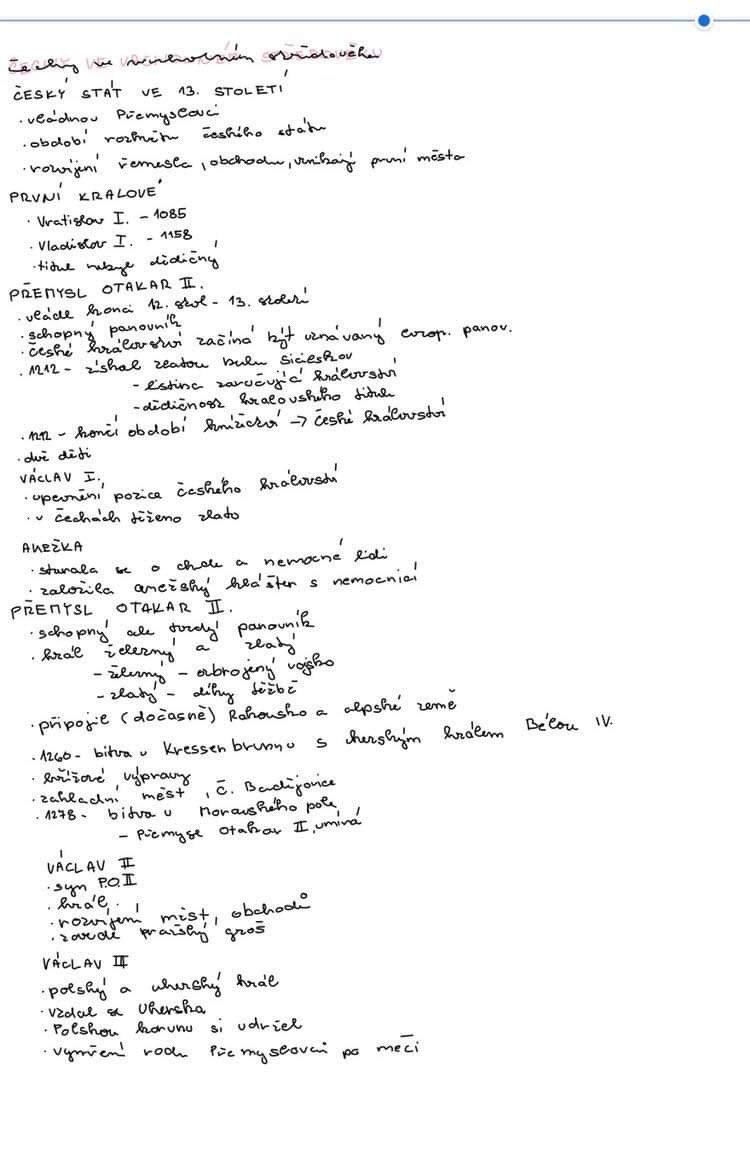 Čechy ve vrcholném středověku
ČESKÝ STÁT VE 13. STOLETÍ
· vládnou Přemyslovci
· období rozkvětu českého státu
· rozvíjení řemesla, obchodu, vznikají první města
PRVNÍ KRALOVÉ
· Vratislav I. - 1085
· Vladislav I. - 1158
· titul nebyl dědičný
PŘEMYSL OTAKAR II.
· vládl konci 12. stol - 13. století
· schopný panovník
· české království začíná být uznávaný evrop. panov.
. 1212 - získal zlatou bulu sicilskou
- listina zaručující království
- dědičnost kralovského titulu
. 1212 - končí období knížectví → české království
· dvě děti
VÁCLAV I.
· upevnění pozice českého království
· v čechách těženo zlato
ANEŽKA
· starala se o chudé a nemocné lidi
· založila anežský klášter s nemocnicí
PŘEMYSL OTAKAR II.
· schopný ale tvrdý panovník
· král železný a zlatý
- železný - ozbrojený vojsko
- zlatý - díky těžbě
· připojil (dočasně) Rakousko a alpské země
. 1260 - bitva u Kressenbrunnu s uherským králem Bélou IV.
· křížové výpravy
· zakladní měst, Č. Budějovice
. 1278 - bitva u Moravského pole
- Přemysl Otakar II. umírá
VÁCLAV II
· syn P.O.II
· král
· rozvíjení měst, obchodů
· zavedl pražský groš
VÁCLAV III
· polský a uherský král
· vzdal se Uherska
· Polskou korunu si udržel
· vymření rodu Přemyslovci po meči